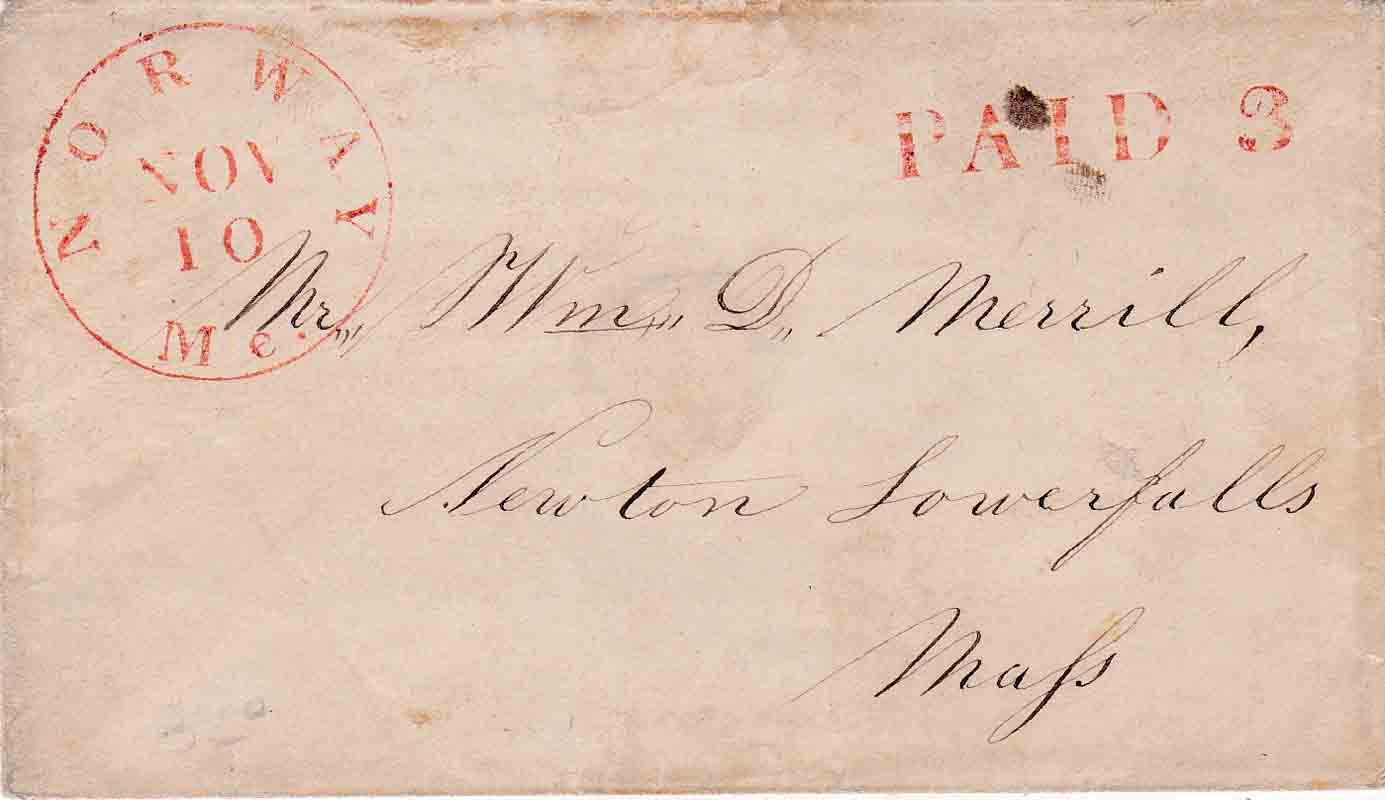 NORWAY
NOV
10
Me.
PAID 3
Mr,, Wm,, D,, Merrill,
Newton Lowerfalls
Maſs